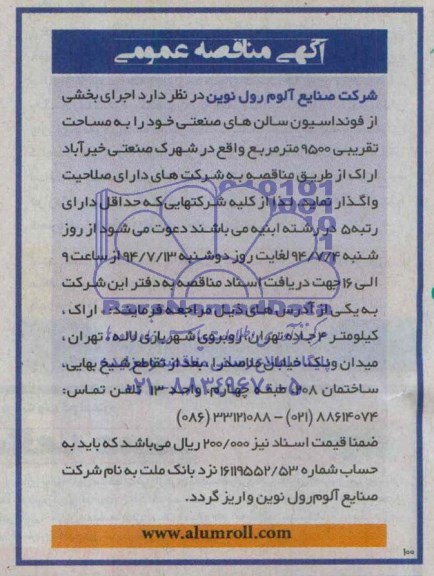 آگهی مناقصه عمومی
شرکت صنایع آلوم رول نوین در نظر دارد اجرای بخشی
از فونداسیون سالن های صنعتی خود را به مساحت
تقریبی ۹۵۰۰ مترمربع واقع در شهرک صنعتی خیرآباد
اراک از طریق مناقصه به شرکت های دارای صلاحیت
واگذار نماید. لذا از کلیه شرکتهایی که حداقل دارای
رتبه ۵ در رشته ابنیه می باشند دعوت می شود از روز
شنبه ۹۴/۷/۴ لغایت روز دوشنبه ۹۴/۷/۱۳ از ساعت ۹
الی ۱۶ جهت دریافت اسناد مناقصه به دفتر این شرکت
به یکی از آدرس های ذیل مراجعه فرمایند: اراک،
کیلومتر ۴ جاده تهران، روبروی شهربازی لاله، تهران،
میدان ونک، خیابان ملاصدرا، بعد از تقاطع شیخ بهایی،
ساختمان ۲۰۸، طبقه چهارم، واحد ۱۳ تلفن تماس:
۸۸۶۱۴۰۷۴ (۰۲۱) – ۳۳۱۲۱۰۸۸ (۰۸۶)
ضمنا قیمت اسناد نیز ۲۰۰/۰۰۰ ریال می‌باشد که باید به
حساب شماره ۱۶۱۱۹۵۵۲/۵۳ نزد بانک ملت به نام شرکت
صنایع آلوم رول نوین واریز گردد.
www.alumroll.com
۱۰۰
ParsNamadData
۰۲۱-۸۸۳۴۹۶۷۰-۵